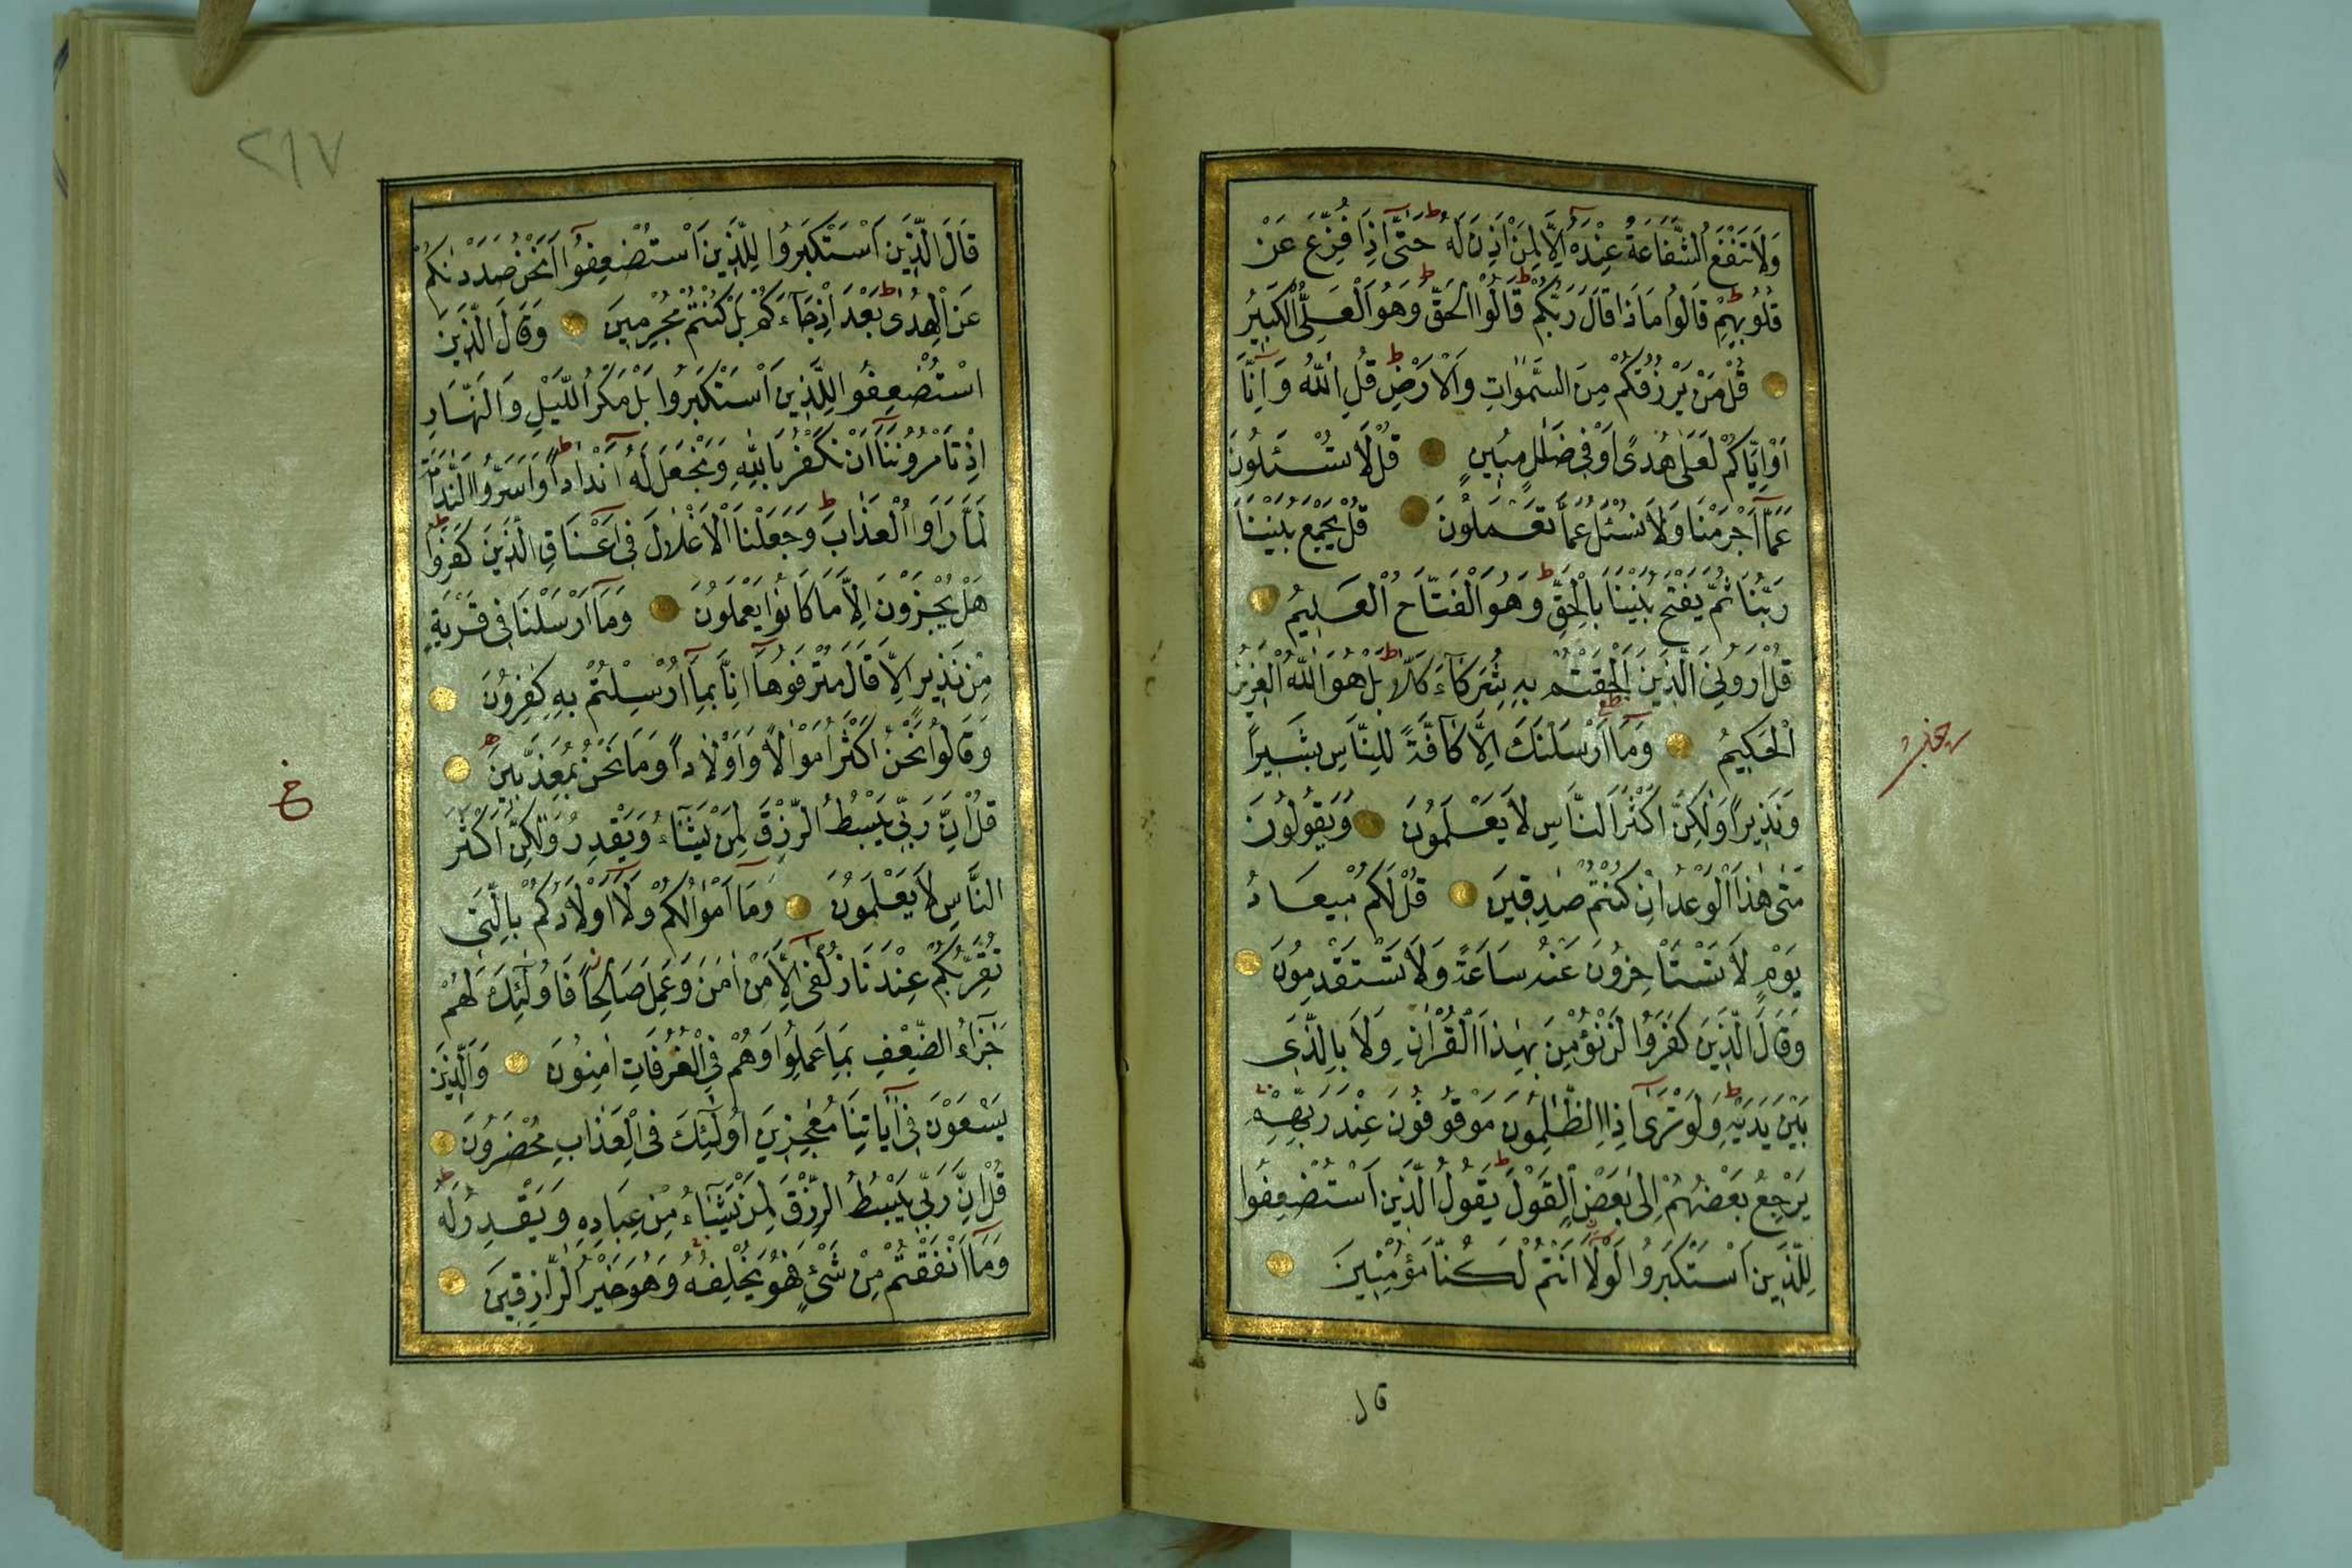 وَلَا تَنْفَعُ الشَّفَاعَةُ عِنْدَهُ اِلَّا لِمَنْ اَذِنَ لَهُ حَتّٰى اِذَا فُزِّعَ عَنْ
قُلُوبِهِمْ قَالُوا مَاذَا قَالَ رَبُّكُمْ قَالُوا الْحَقَّ وَهُوَ الْعَلِىُّ الْكَبِيرُ
قُلْ مَنْ يَرْزُقُكُمْ مِنَ السَّمٰوَاتِ وَالْاَرْضِ قُلِ اللّٰهُ وَاِنَّا
اَوْ اِيَّاكُمْ لَعَلٰى هُدًى اَوْ فِى ضَلَالٍ مُبِينٍ قُلْ لَا تُسْـَٔلُونَ
عَمَّا اَجْرَمْنَا وَلَا نُسْـَٔلُ عَمَّا تَعْمَلُونَ قُلْ يَجْمَعُ بَيْنَنَا
رَبُّنَا ثُمَّ يَفْتَحُ بَيْنَنَا بِالْحَقِّ وَهُوَ الْفَتَّاحُ الْعَلِيمُ
قُلْ اَرُونِىَ الَّذِينَ اَلْحَقْتُمْ بِهِ شُرَكَآءَ كَلَّا بَلْ هُوَ اللّٰهُ الْعَزِيزُ
الْحَكِيمُ وَمَا اَرْسَلْنَكَ اِلَّا كَافَّةً لِلنَّاسِ بَشِيراً
وَنَذِيراً وَلٰكِنَّ اَكْثَرَ النَّاسِ لَا يَعْلَمُونَ وَيَقُولُونَ
مَتٰى هٰذَا الْوَعْدُ اِنْ كُنْتُمْ صٰدِقِينَ قُلْ لَكُمْ مِيعَادُ
يَوْمٍ لَا تَسْتَاْخِرُونَ عَنْهُ سَاعَةً وَلَا تَسْتَقْدِمُونَ
وَقَالَ الَّذِينَ كَفَرُوا لَنْ نُؤْمِنَ بِهٰذَا الْقُرْاٰنِ وَلَا بِالَّذِى
بَيْنَ يَدَيْهِ وَلَوْ تَرٰى اِذِ الظّٰلِمُونَ مَوْقُوفُونَ عِنْدَ رَبِّهِمْ
يَرْجِعُ بَعْضُهُمْ اِلٰى بَعْضٍ الْقَوْلَ يَقُولُ الَّذِينَ اسْتُضْعِفُوا
لِلَّذِينَ اسْتَكْبَرُوا لَوْلَا اَنْتُمْ لَكُنَّا مُؤْمِنِينَ
قال
٢١٧
قَالَ الَّذِينَ اسْتَكْبَرُوا لِلَّذِينَ اسْتُضْعِفُوا اَنَحْنُ صَدَدْنٰكُمْ
عَنِ الْهُدٰى بَعْدَ اِذْ جَآءَكُمْ بَلْ كُنْتُمْ مُجْرِمِينَ وَقَالَ الَّذِينَ
اسْتُضْعِفُوا لِلَّذِينَ اسْتَكْبَرُوا بَلْ مَكْرُ اللَّيْلِ وَالنَّهَارِ
اِذْ تَاْمُرُونَنَا اَنْ نَكْفُرَ بِاللّٰهِ وَنَجْعَلَ لَهُ اَنْدَاداً وَاَسَرُّوا النَّدَامَةَ
لَمَّا رَاَوُا الْعَذَابَ وَجَعَلْنَا الْاَغْلَالَ فِى اَعْنَاقِ الَّذِينَ كَفَرُوا
هَلْ يُجْزَوْنَ اِلَّا مَا كَانُوا يَعْمَلُونَ وَمَا اَرْسَلْنَا فِى قَرْيَةٍ
مِنْ نَذِيرٍ اِلَّا قَالَ مُتْرَفُوهَا اِنَّا بِمَا اُرْسِلْتُمْ بِهِ كٰفِرُونَ
وَقَالُوا نَحْنُ اَكْثَرُ اَمْوَالاً وَاَوْلَاداً وَمَا نَحْنُ بِمُعَذَّبِينَ
قُلْ اِنَّ رَبِّى يَبْسُطُ الرِّزْقَ لِمَنْ يَشَآءُ وَيَقْدِرُ وَلٰكِنَّ اَكْثَرَ
النَّاسِ لَا يَعْلَمُونَ وَمَا اَمْوَالُكُمْ وَلَا اَوْلَادُكُمْ بِالَّتِى
تُقَرِّبُكُمْ عِنْدَنَا زُلْفٰى اِلَّا مَنْ اٰمَنَ وَعَمِلَ صَالِحاً فَاُولٰئِكَ لَهُمْ
جَزَآءُ الضِّعْفِ بِمَا عَمِلُوا وَهُمْ فِى الْغُرُفَاتِ اٰمِنُونَ وَالَّذِينَ
يَسْعَوْنَ فِى اٰيَاتِنَا مُعٰجِزِينَ اُولٰئِكَ فِى الْعَذَابِ مُحْضَرُونَ
قُلْ اِنَّ رَبِّى يَبْسُطُ الرِّزْقَ لِمَنْ يَشَآءُ مِنْ عِبَادِهِ وَيَقْدِرُ لَهُ
وَمَا اَنْفَقْتُمْ مِنْ شَىْءٍ فَهُوَ يُخْلِفُهُ وَهُوَ خَيْرُ الرَّازِقِينَ